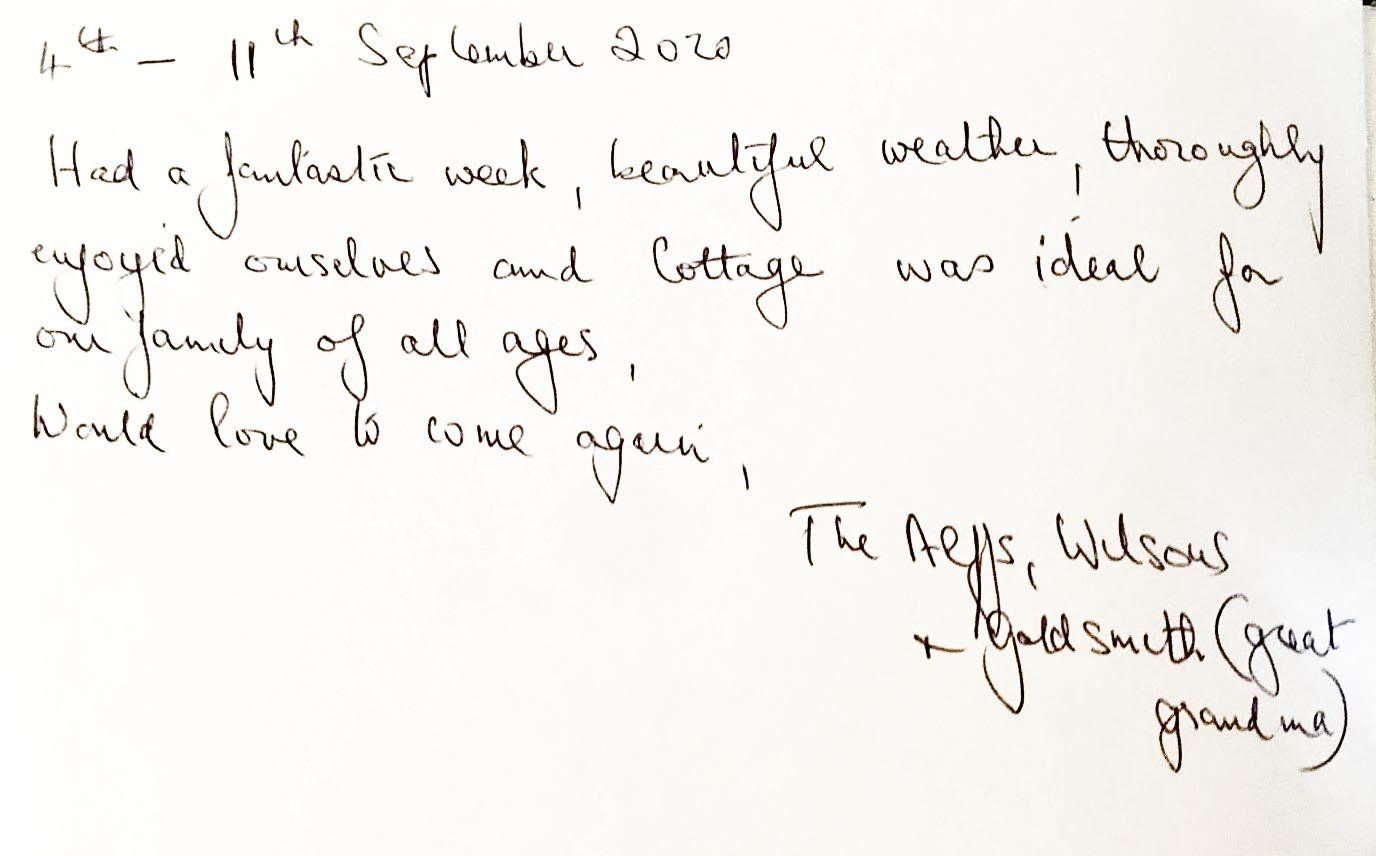 4th - 11th September 2020
Had a fantastic week, beautiful weather, thoroughly
enjoyed ourselves and Cottage was ideal for
our family of all ages,
Would love to come again,
The Wilsons
+ Goldsmith (great
grandma)